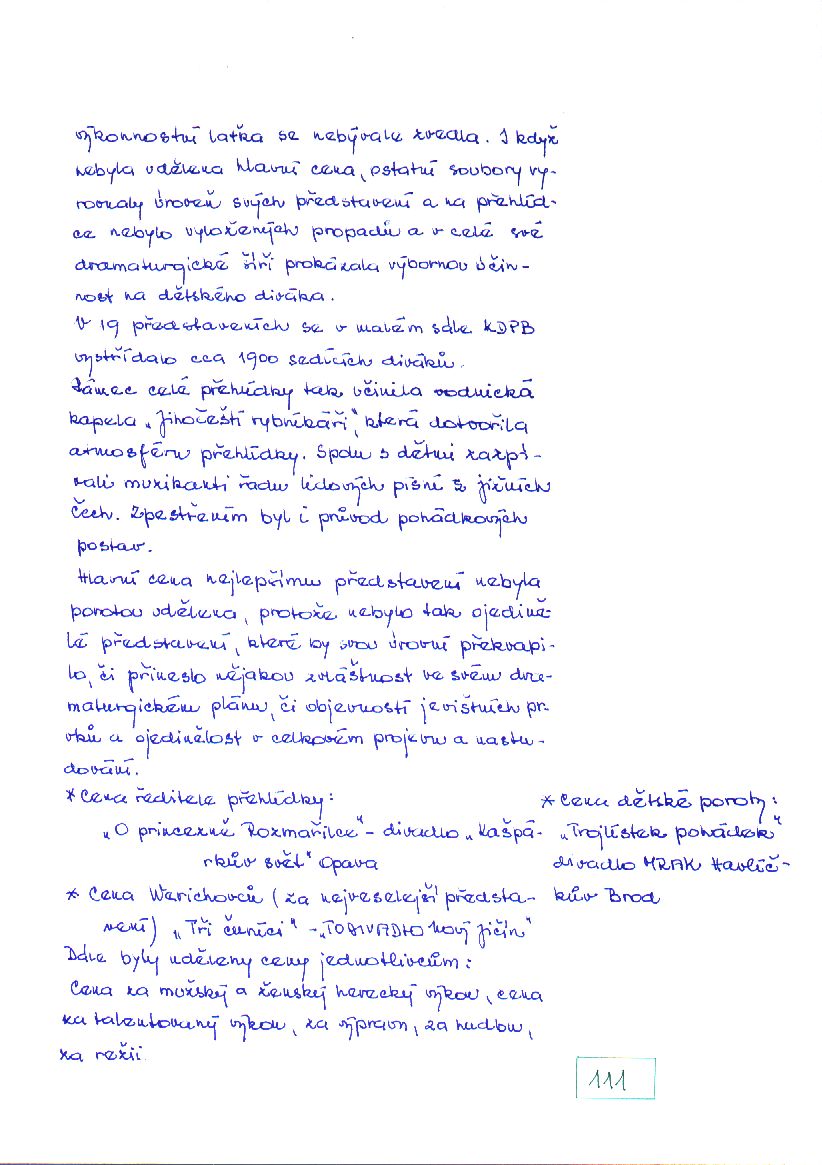 výkonnostní laťka se nebývale zvedla. I když
nebyla udělena hlavní cena, ostatní soubory vy-
rovnaly úroveň svých představení a na přehlíd-
ce nebylo vyložených propadů a v celé své
dramaturgické šíři prokázala výbornou účin-
nost na dětského diváka.
V 19 představeních se v malém sále KDPB
vystřídalo cca 1900 sedících diváků.
Rámec celé přehlídky tak učinila vodnická
kapela „Jihočeští rybníkáři“, která dotvořila
atmosféru přehlídky. Spolu s dětmi zazpí-
vali muzikanti řadu lidových písní z jižních
Čech. Zpestřením byl i průvod pohádkových
postav.
Hlavní cena nejlepšímu představení nebyla
porotou udělena, protože nebylo tak ojedině-
lé představení, které by svou úrovní překvapi-
lo, či přineslo nějakou zvláštnost ve svém dra-
maturgickém plánu, či objevností jevištních pr-
vků a ojedinělost v celkovém projevu a nastu-
dování.
* Cena ředitele přehlídky:
„O princezně Rozmařilce“ - divadlo „Kašpá-
rkův svět“ Opava
* Cena Werichovců (za nejveselejší předsta-
vení) „Tři čuníci“ - „TODIVADLO Nový Jičín“
* Cena dětské poroty:
„Trojlístek pohádek“
divadlo MRAK Havlíč-
kův Brod
Dále byly uděleny ceny jednotlivcům:
Cena za mužský a ženský herecký výkon, cena
za talentovaný výkon, za výpravu, za hudbu,
za režii.
111